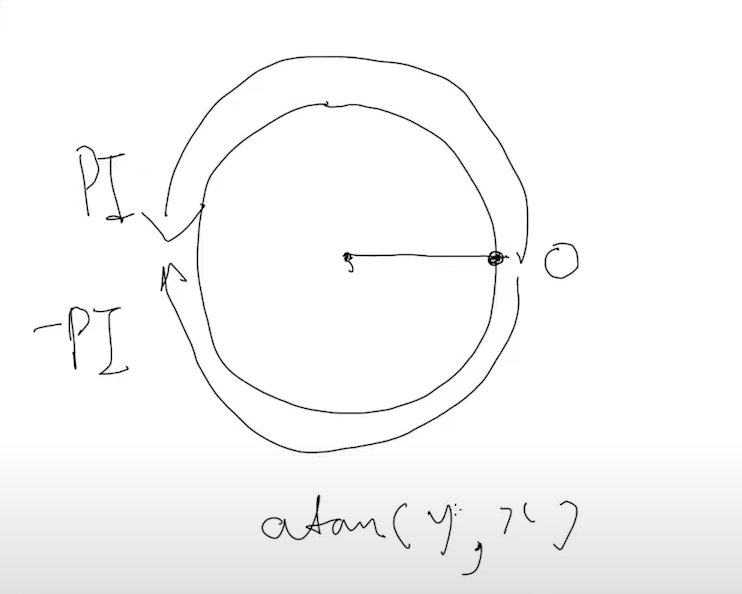 PI
0
-PI
atan(y, x)